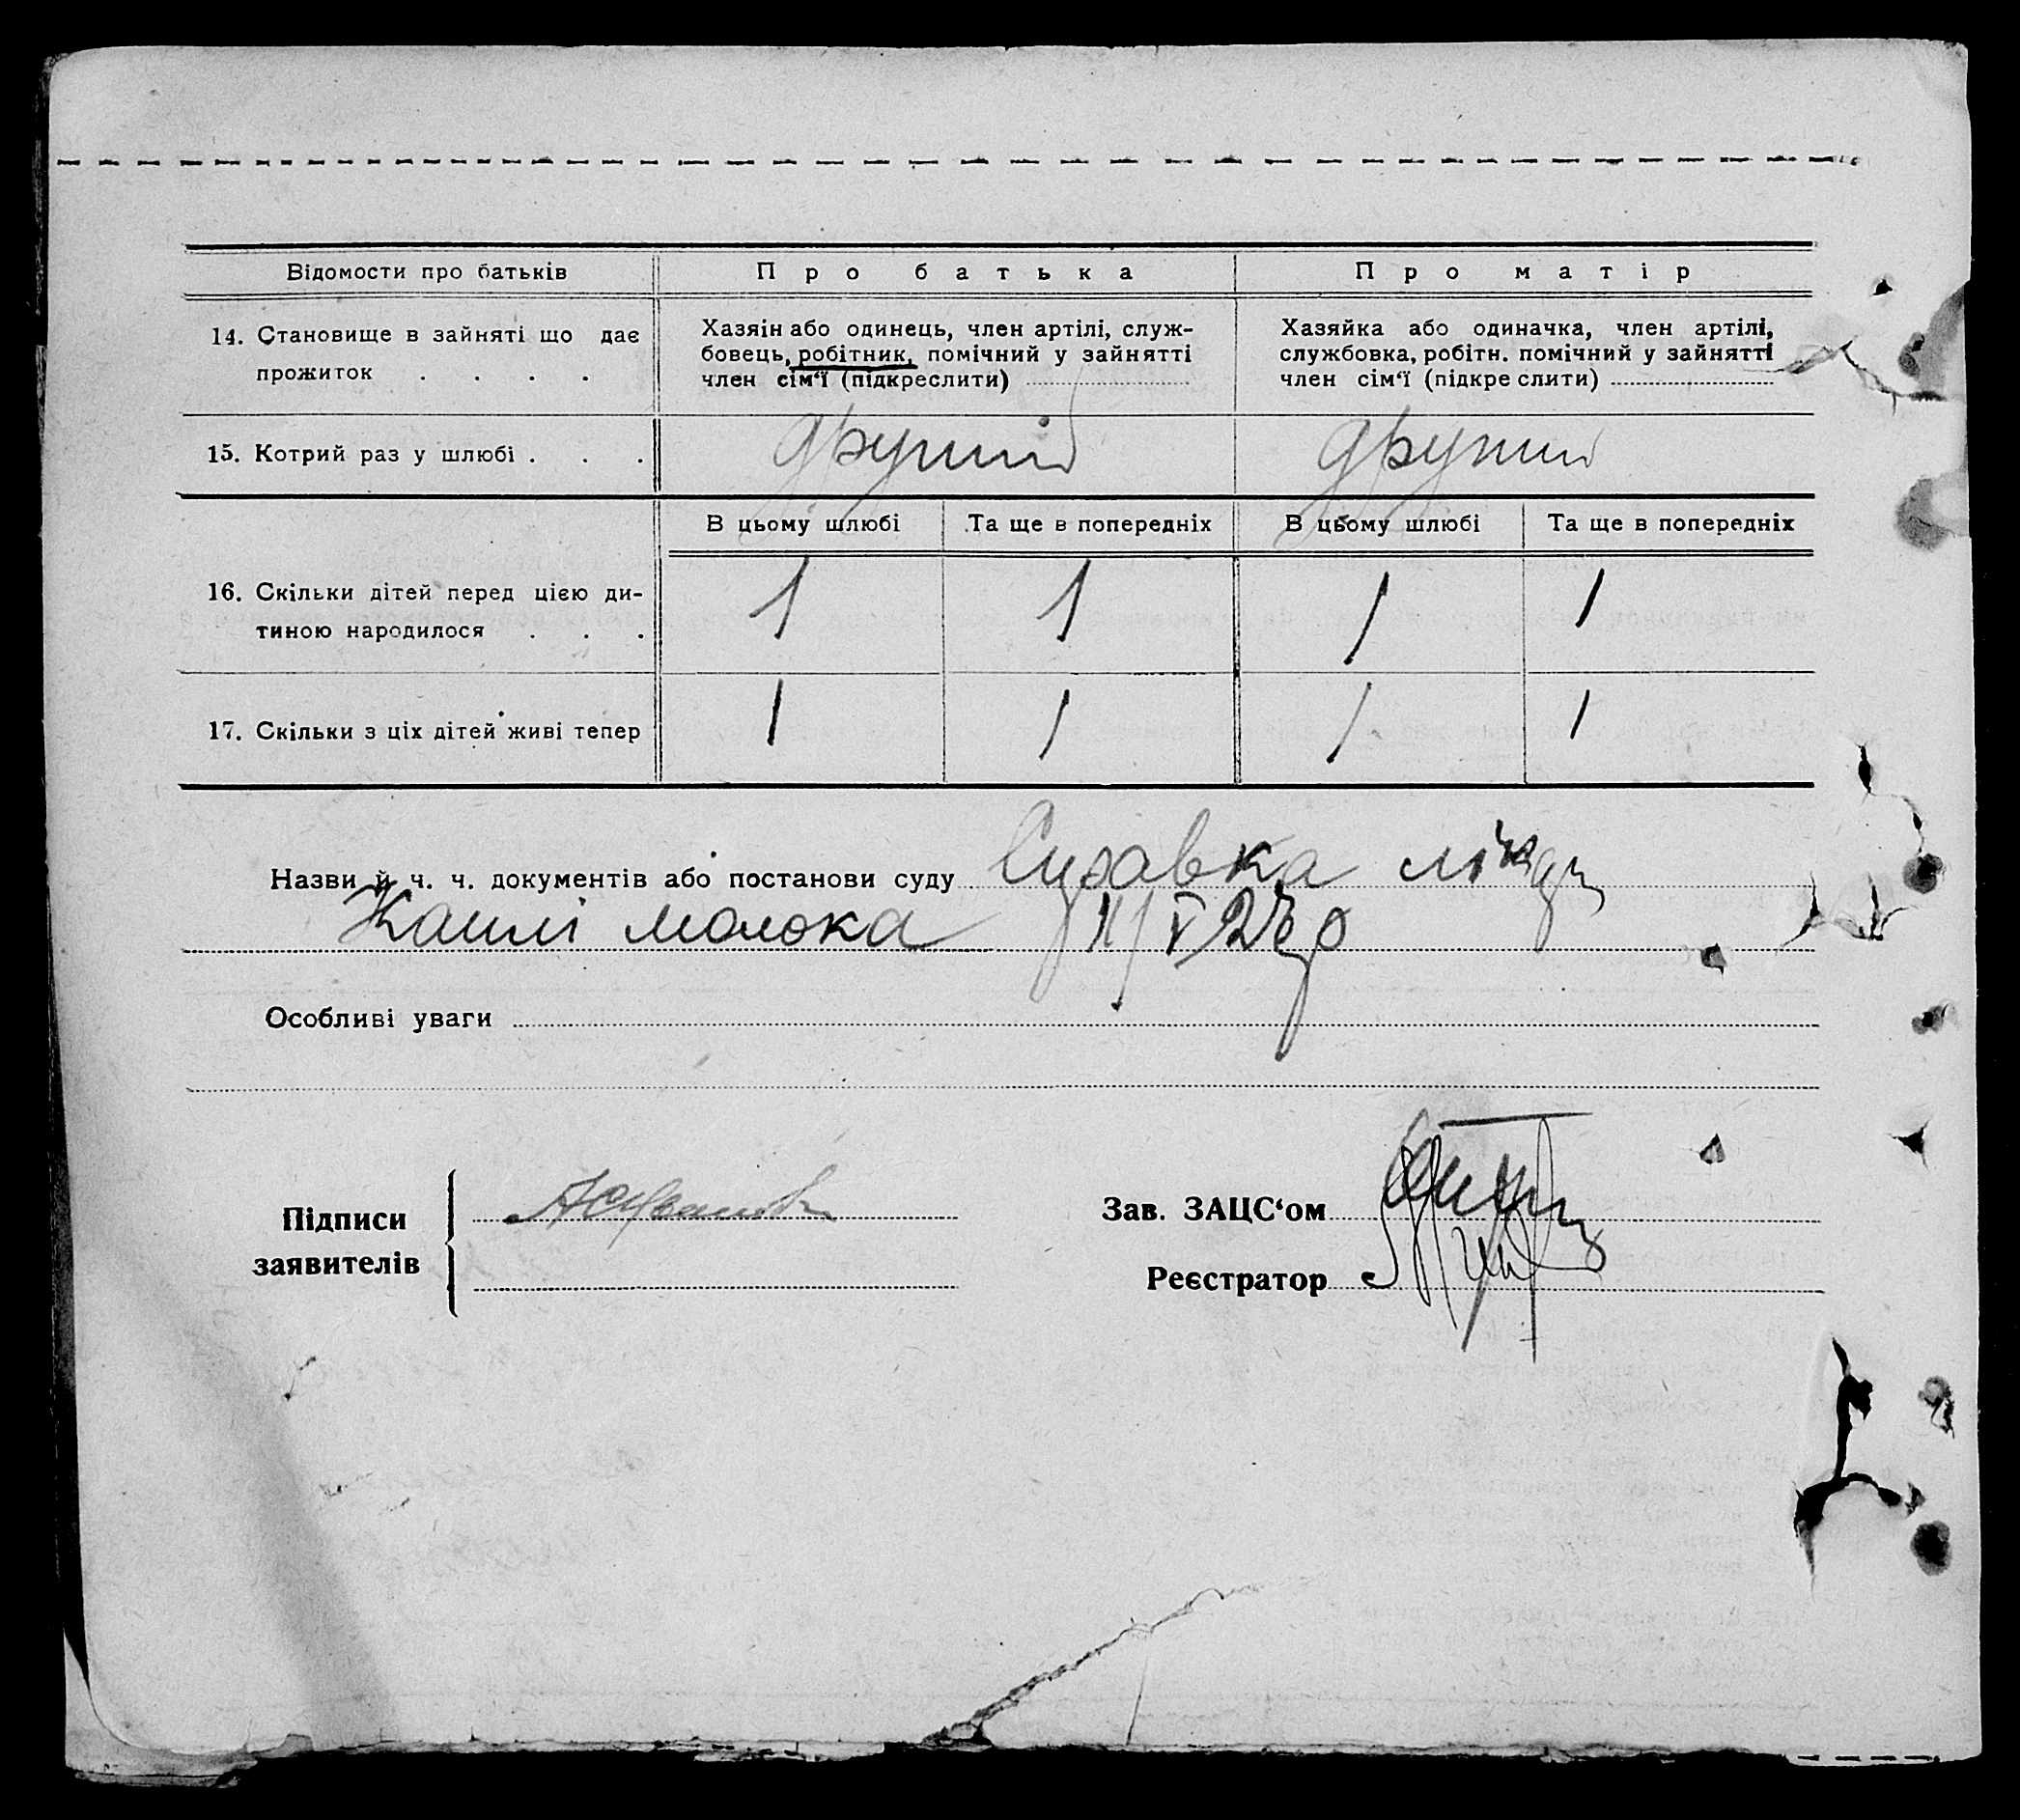 Відомости про батьків
Про батька
Про матір
14. Становище в зайняті що дає
прожиток . . . .
Хазяін або одинець, член артілі, служ-
бовець, робітник, помічний у зайнятті
член сім‘ї (підкреслити)
Хазяйка або одиначка, член артілі,
службовка, робітн. помічний у зайнятті
член сім‘ї (підкреслити)
15. Котрий раз у шлюбі . . .
другий
другий
В цьому шлюбі
Та ще в попередніх
В цьому шлюбі
Та ще в попередніх
16. Скільки дітей перед цією ди-
тиною народилося . . .
1 1 1 1
17. Скільки з ціх дітей живі тепер
1 1 1 1
Назви й ч. ч. документів або постанови суду
Каплі молока
Особливі уваги
Підписи
заявителів
Зав. ЗАЦС‘ом
Реєстратор